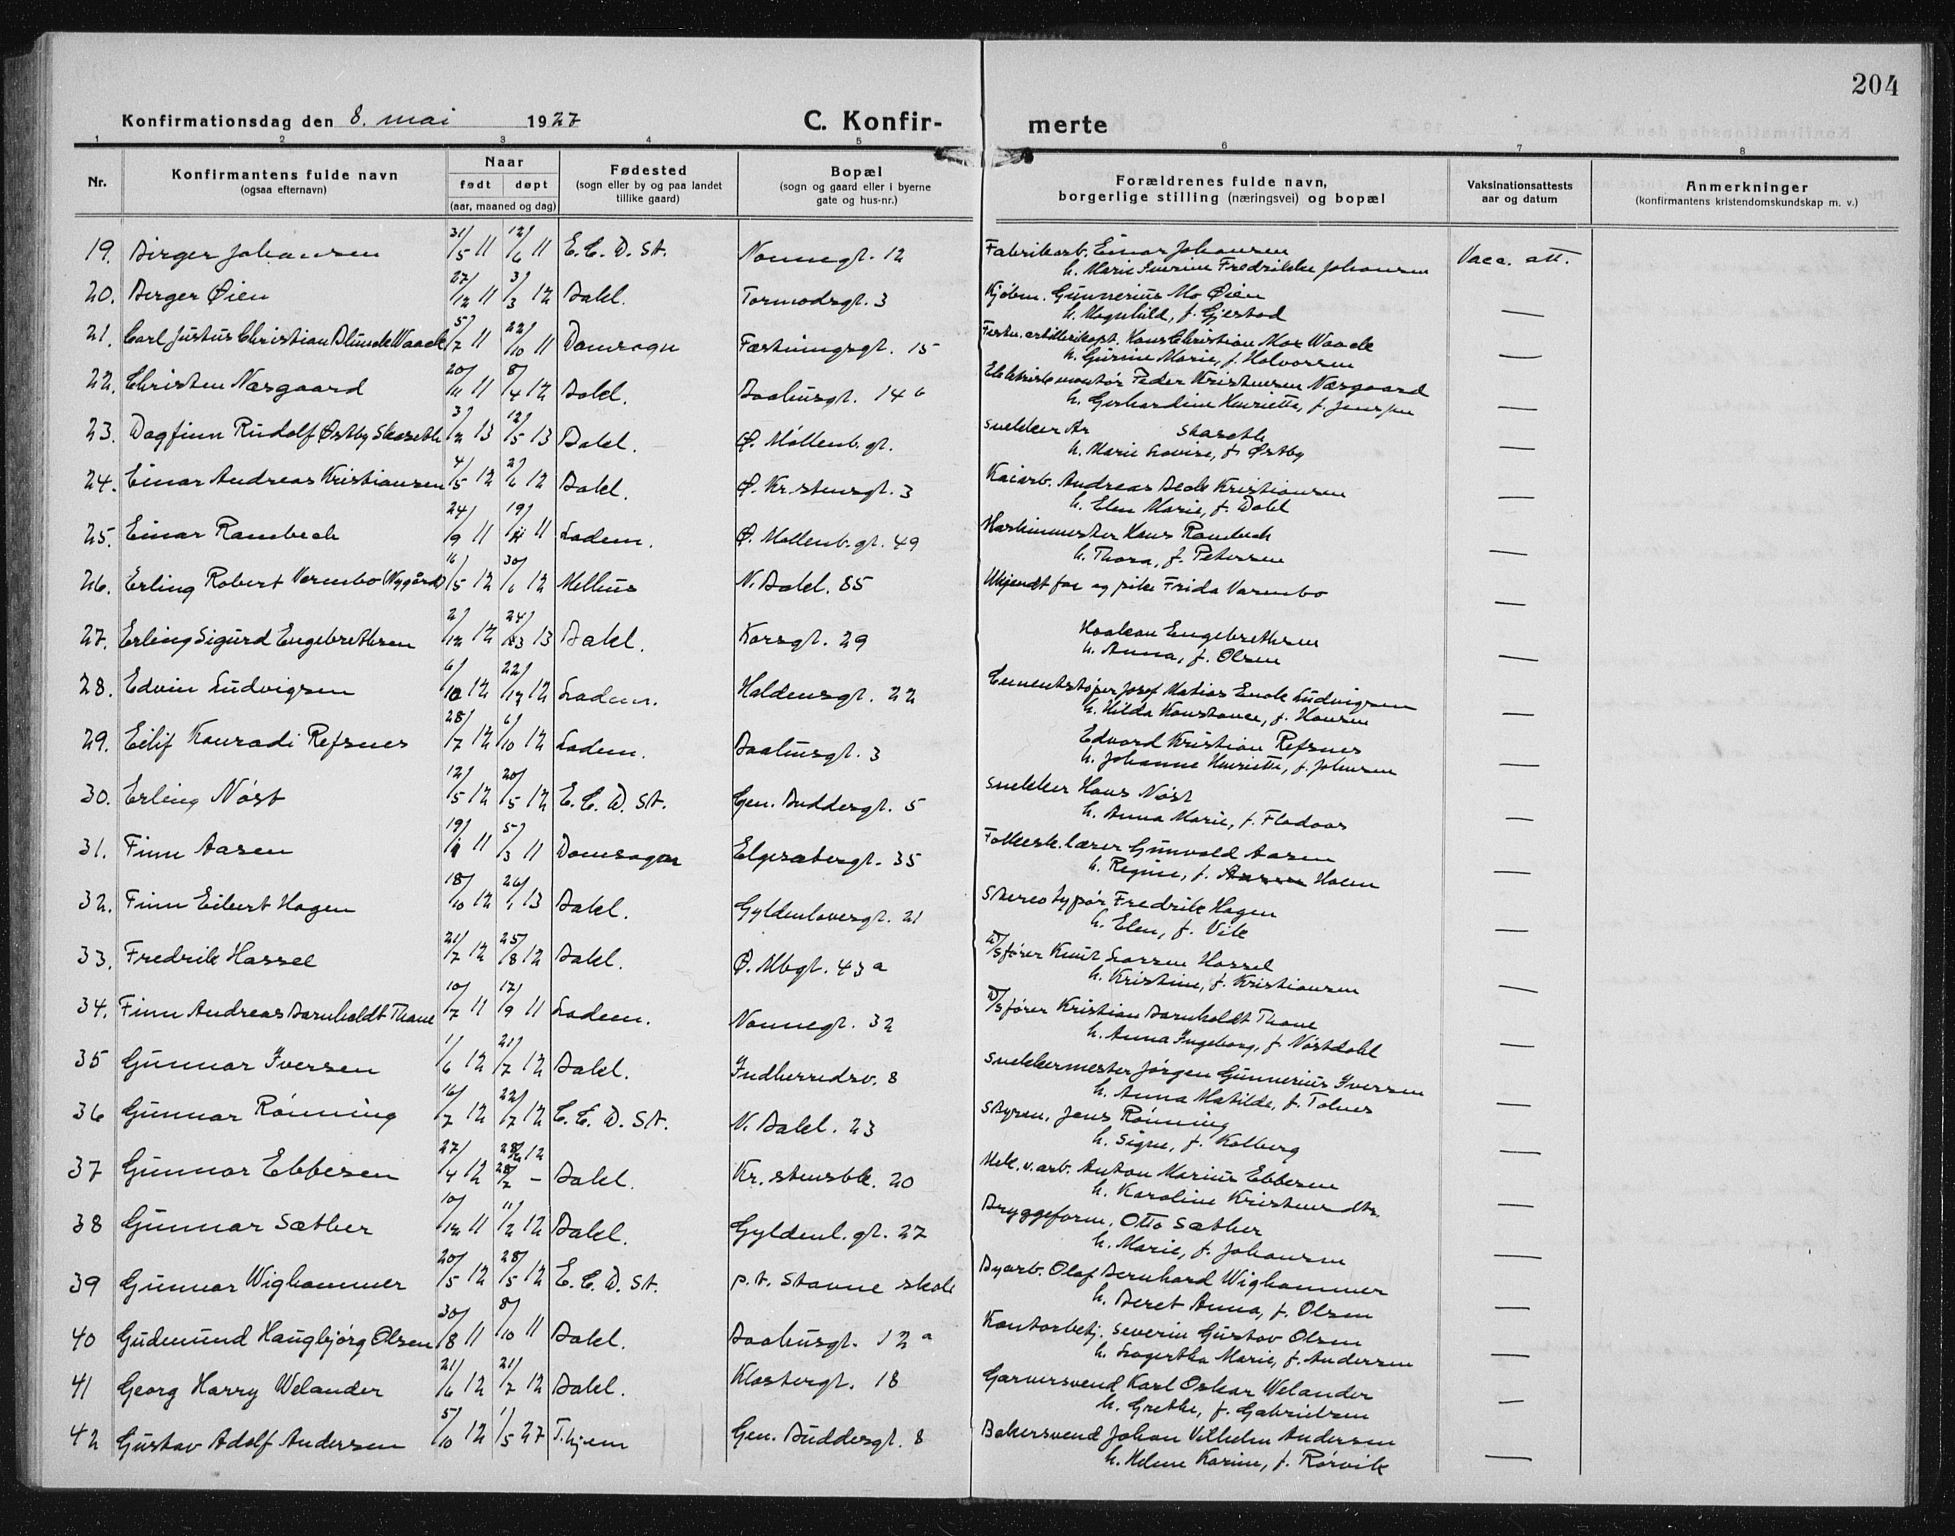 204
Konfirmationsdag den 8. mai 1927 C. Konfir- merte
1 2 3 4 5 6 7 8
Nr. Konfirmantens fulde navn (ogsaa efternavn) Naar født døpt (aar, maaned og dag) Fødested (sogn eller by og paa landet tillike gaard) Bopæl (sogn og gaard eller i byerne gate og hus-nr.) Forældrenes fulde navn, borgerlige stilling (næringsvei) og bopæl Vaksinationsattests aar og datum Anmerkninger (konfirmantens kristendomskundskap m. v.)
19. Birger Johansen 31/5 11 12/6 11 E. C. D. St. Nonnegt. 12 Fabrikarb. Einar Johansen
h. Marie Severine Fredrikke Johansen Vacc. att.
20. Birger Øien 27/12 11 3/3 12 Bakl. Tormodsgt. 3 Kjøbm. Gunnerius Mo Øien
h. Magnhild, f. Gjestad —
21. Carl Justus Christian Blunck Waack 5/7 11 22/10 11 Domsogn Fæstningsgt. 15 Festn. artillerikapt. Hans Christian Moe Waack
h. Gurine Marie, f. Halvorsen —
22. Christen Næsgaard 20/11 11 8/4 12 Bakl. Baahusgt. 14 b Elektriskmontør Peder Kristensen Næsgaard
h. Gerhardine Henriette, f. Jenssen —
23. Dagfinn Rudolf Østby Skaseth 3/2 13 12/5 13 Bakl. Ø. Møllenb. gt. Snekker Ar Skaseth
h. Marie Lovise, f. Østby —
24. Einar Andreas Kristiansen 4/5 12 2/6 12 Bakl. Ø. Kr.stensgt. 3 Kaiarb. Andreas Beck Kristiansen
h. Elen Marie, f. Dahl —
25. Einar Rambech 24/9 11 19/11 11 Ladem. Ø. Møllenb. gt. 49 Maskinmester Hans Rambech
h. Thora, f. Petersen —
26. Erling Robert Vermbo (Nygård) 16/5 12 30/6 12 Melhus N. Bakl. 85 Ukjendt far og pike Frida Varmbo —
27. Erling Sigurd Engebrethsen 2/12 12 24/3 13 Bakl. Korsgt. 29 Haakon Engebrethsen
h. Anna, f. Olsen —
28. Edvin Ludvigsen 6/10 12 22/12 12 Ladem. Haldensgt. 22 Cementstøper Josef Matias Enok Ludvigsen
h. Hilda Konstance, f. Hansen —
29. Eilif Konradi Refsnes 28/7 12 6/10 12 Ladem. Baahusgt. 3 Edvard Kristian Refsnes
h. Johanne Henriette, f. Johnsen —
30. Erling Nøst 12/5 12 20/5 12 E. C. D. St. Gen. Buddesgt. 5 Snekker Hans Nøst
h. Anna Marie, f. Fladaas —
31. Finn Aasen 19/1 11 5/3 11 Domsogn Elgesætergt. 35 Folkesk. lærer Gunvald Aasen
h. Regine, f. Holm —
32. Finn Eilert Hagen 18/10 12 26/1 13 Bakl. Gyldenløvesgt. 21 Stereotypør Fredrik Hagen
h. Elen, f. Vik —
33. Fredrik Hassel 21/7 12 25/8 12 Bakl. Ø. Mbgt. 43 a D/Sfører Knut Larsen Hassel
h. Kristine, f. Kristiansen —
34. Finn Andreas Barnholdt Thane 10/7 11 17/9 11 Ladem. Nonnegt. 32 D/Sfører Kristian Barnholdt Thane
h. Anna Ingeborg, f. Nøstdahl —
35 Gunnar Iversen 1/6 12 21/7 12 Bakl. Indherredsv. 8 Snekkermester Jørgen Gunnerius Iversen
h. Anna Matilde, f. Tolnes —
36 Gunnar Rønning 16/7 12 22/7 12 E. C. D. St. N. Bakl. 23 Styrm. Jens Rønning
h. Signe, f. Kolberg —
37 Gunnar Ebbesen 27/4 12 28/4 12 28/7 – Bakl. Kr. stensbk. 20 Mek. v. arb. Anton Marius Ebbesen
h. Karoline Kristensdtr. —
38 Gunnar Sæther 10/12 11 11/2 12 Bakl. Gyldenl. gt. 27 Bryggeform. Otto Sæther
h. Marie, f. Johansen —
39 Gunnar Wighammer 20/5 12 28/5 12 E. C. D. St. p. t. Stavne skole Byarb. Olaf Bernhard Wighammer
h. Beret Anna, f. Olsen —
40 Gudmund Haugbjørg Olsen 30/8 11 8/10 11 Bakl. Baahusgt. 12 a Kontorbetj. Severin Gustav Olsen
h. Lagertha Marie, f. Andersen —
41 Georg Harry Welander 21/6 12 21/7 12 Bakl. Klostergt. 18 Garversvend Karl Oskar Welander
h. Grethe, f. Gabrielsen —
42 Gustav Adolf Andersen 5/10 12 1/5 27 T.hjem Gen. Buddesgt. 8 Bakersvend Johan Vilhelm Andersen
h. Helene Karine, f. Rørvik —